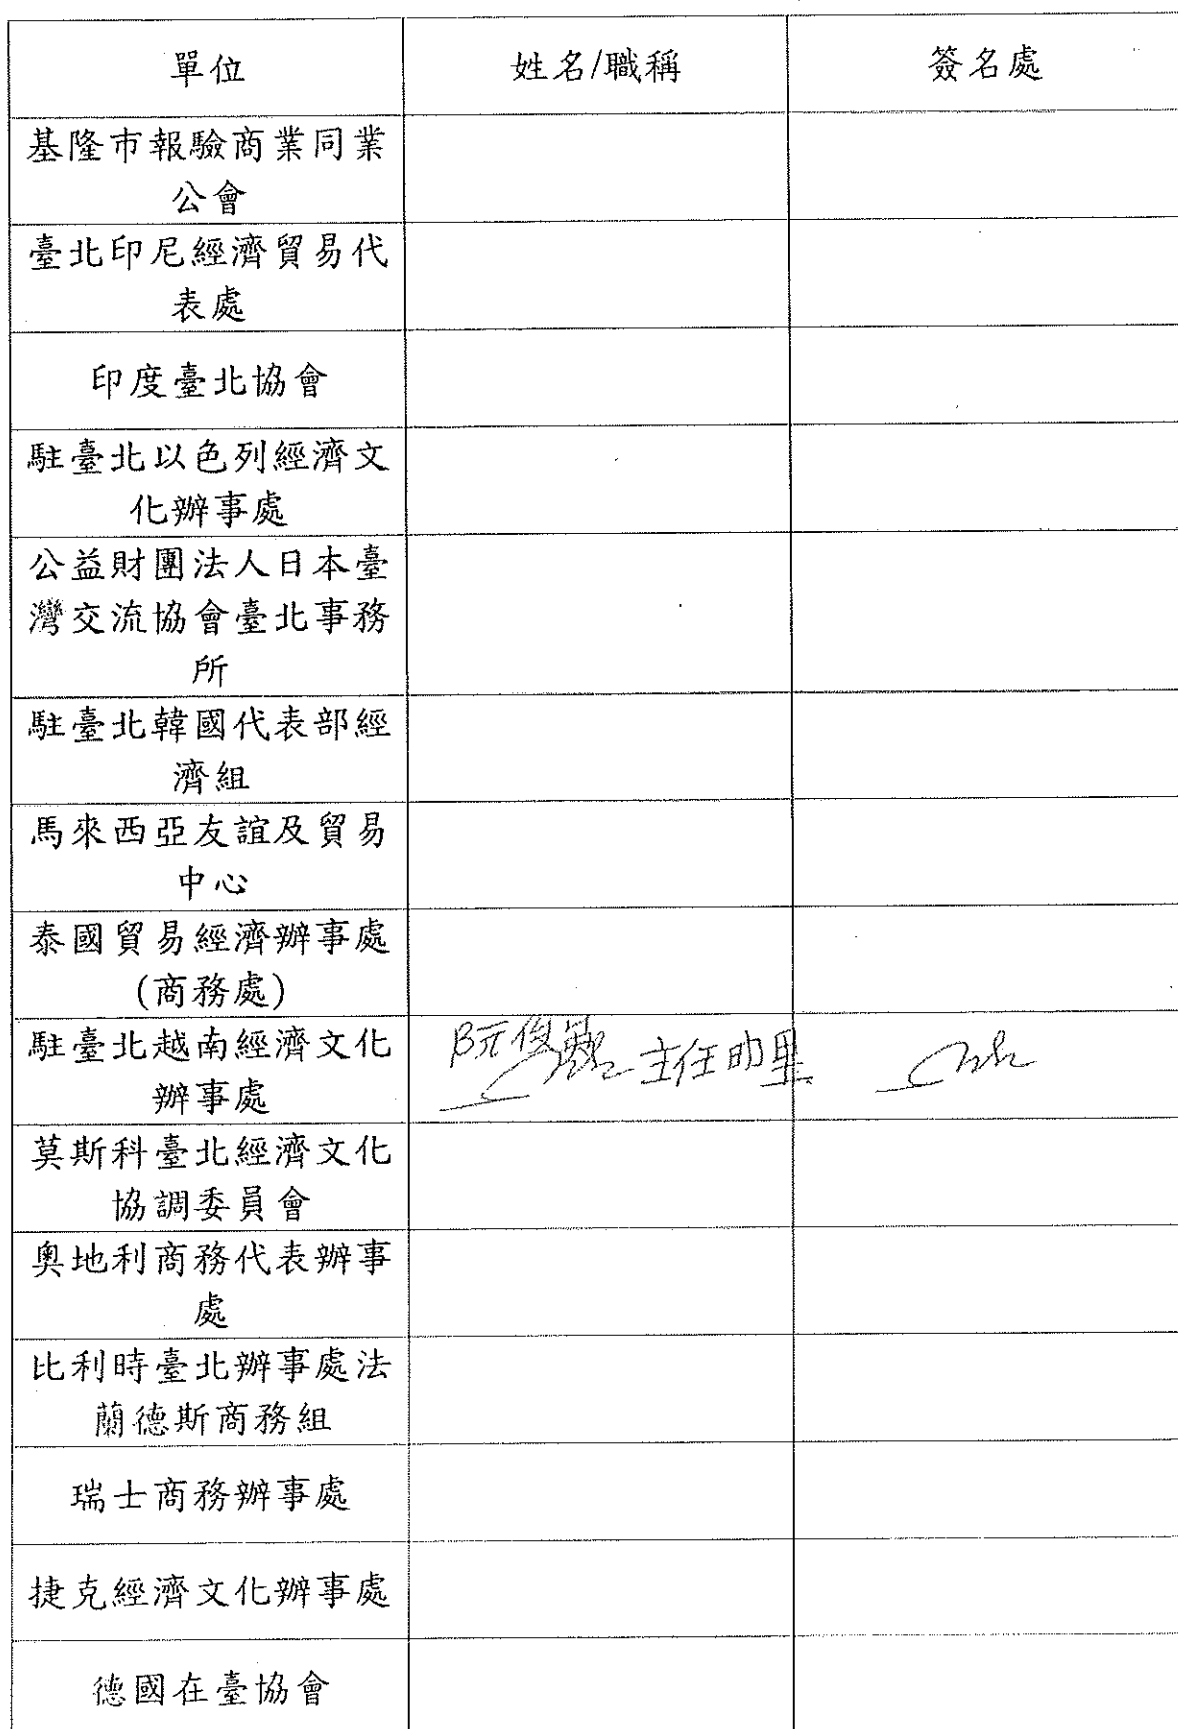 單位 姓名/職稱 簽名處
基隆市報驗商業同業
公會
臺北印尼經濟貿易代
表處
印度臺北協會
駐臺北以色列經濟文
化辦事處
公益財團法人日本臺
灣交流協會臺北事務
所
駐臺北韓國代表部經
濟組
馬來西亞友誼及貿易
中心
泰國貿易經濟辦事處
(商務處)
駐臺北越南經濟文化
辦事處
阮俊 主任助理
莫斯科臺北經濟文化
協調委員會
奧地利商務代表辦事
處
比利時臺北辦事處法
蘭德斯商務組
瑞士商務辦事處
捷克經濟文化辦事處
德國在臺協會